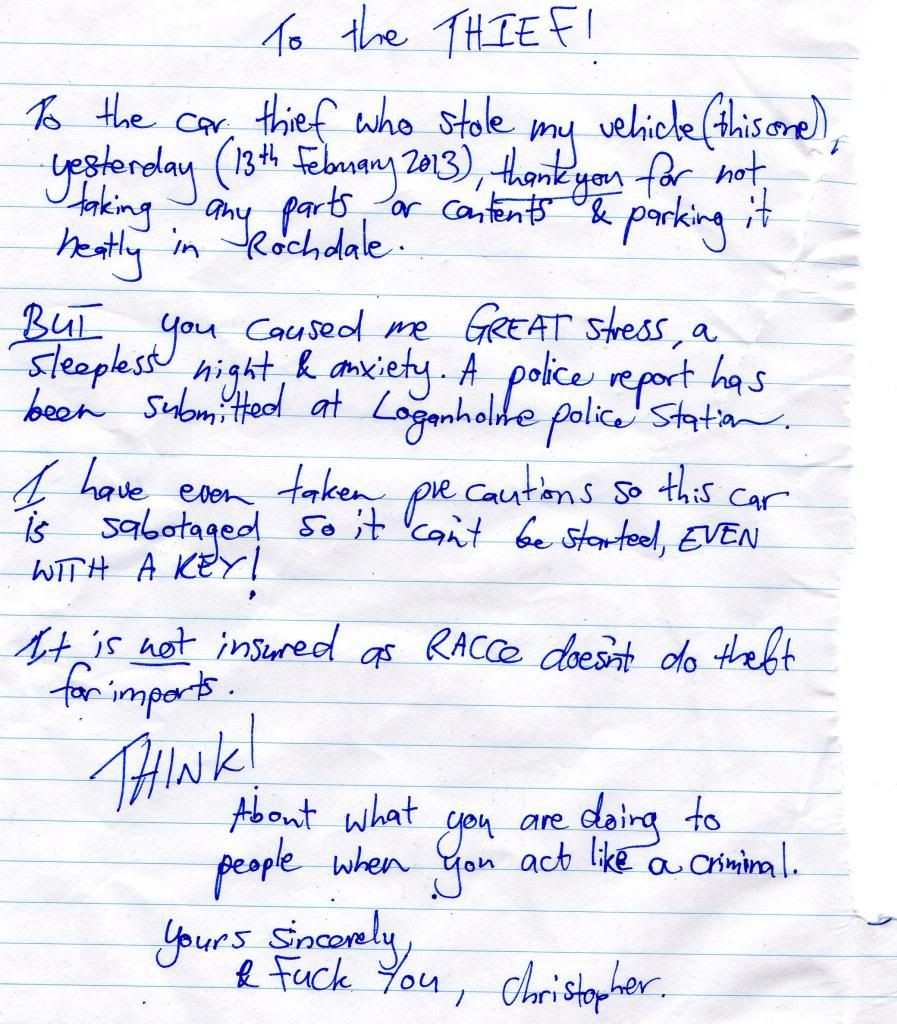 To the THIEF!
To the car thief who stole my vehicle (this one),
yesterday (13th February 2013), thankyou for not
taking any parts or contents & parking it
neatly in Rochdale.
BUT you caused me GREAT stress, a
sleepless night & anxiety. A police report has
been submitted at Loganholme police station.
I have even taken pre cautions so this car
is sabotaged so it can't be started, EVEN
WITH A KEY!
It is not insured as RACCQ doesn't do theft
for imports.
THINK!
About what you are doing to
people when you act like a criminal.
Yours Sincerely,
& Fuck You, Christopher.